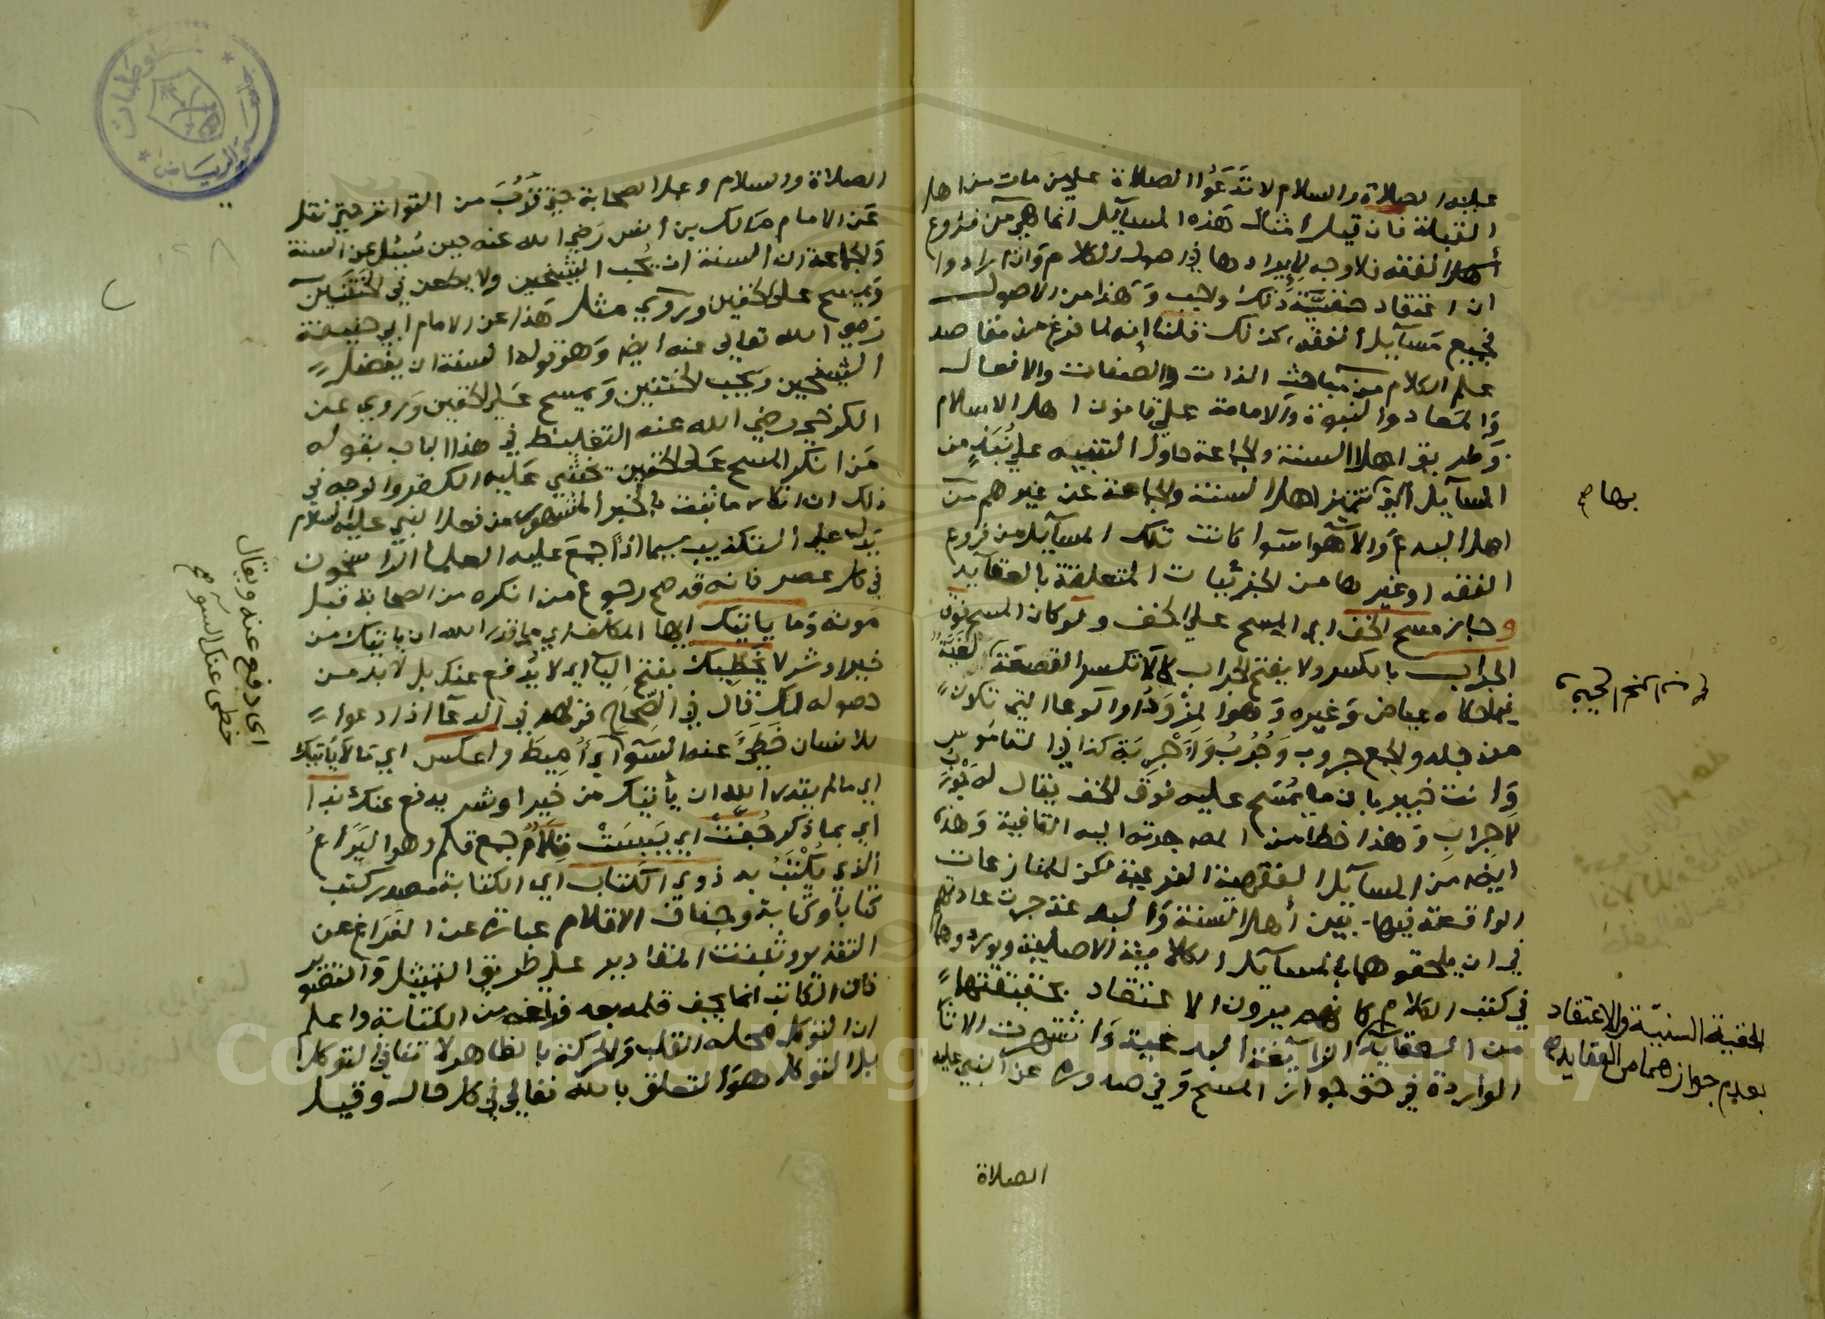 عليه الصلاة والسلام لا تدعوا الصلاة علي من مات من اهل
القبلة فان قيل امثال هذه المسآيل انما هي من فروع
الفقه فلا وجه لايرادها في اصول الكلام وان ارادوا
ان اعتقاد حقيّة ذلك واجب وهذا من الاصول
فجميع مسآيل الفقه كذلك قلنا انه لما فرغ من مقاصد
علم الكلام من مباحث الذات والصفات والافعال
والمعاد والنبوة والامامة علي قانون اهل الاسلام
وطريق اهل السنة والجماعة حاول التنبيه علي نبذ من
المسآيل التي تتميز اهل السنة والجماعة عن غيرهم من
اهل البدع والآهوآ سوا كانت تلك المسآيل من فروع
الفقه او غيرها من الجزئيات المتعلقة بالعقايد
وجايز مسح الخف اي المسح علي الخف ولو كان المسح فوق
الجراب بالكسر ولا يفتح الجراب كما لا تكسر القصعة
فيما حكاه عياض وغيره وهو المزود او الوعا التي تكون
من جلد والجمع جروب وجُرُب وأجربة كذا في القاموس
وانت خبير بان ما يمسح عليه فوق الخف يقال له جورب
لا جراب وهذا خطا من المص جرته اليه القافية وهذه
ايضه من المسآيل الفقهية الفرعية لكن للمنازعات
الواقعة فيها بين أهل السنة والبدعة جرت عادتهم
في ان يلحقوهما بالمسآيل الكلامية الاصلية ويوردوها
في كتب الكلام كانهم يرون الاعتقاد بحقيقتها
من العقايد الزايغة البدعية واشتهرت الاثار
الواردة في حق جواز المسح وفي صدوره عن النبي عليه
الصلاة
بها صح
الحقية السنيّة والاعتقاد
بعدم جوازهما من العقايد صح
الصلاة والسلام وعلي الصحابة حتي قَرُبَ من التواتر حتي نقل
عن الامام مالك بن أنس رضي الله عنه حين سُئل عن السنة
والجماعة ان السنة ان يُحب الشيخين ولا يطعن في الختنين
ويمسح علي الخفين وروي مثل هذا عن الامام ابي حنيفة
رضي الله تعالي عنه ايضه وهو قوله السنة ان يفضل
الشيخين ويحب الختنين ويمسح علي الخفين وروي عن
الكرخي رضي الله عنه التغليظ في هذا الباب بقوله
من انكر المسح علي الخفين خشي عليه الكفر والوجه في
ذلك ان انكار ما ثبت بالخبر المشهور من فعل النبي عليه السلام
يدل علي التكذيب سيما اذا اجمع عليه العلما الراسخون
في كل عصر فانه قد صح رجوع من انكره من الصحابة قبل
موته وما ياتيك ايها المكلف اي ما قدر الله ان ياتيك من
خير او شر لا يخطيك بفتح اليا اي لا يدفع عنك بل لا بد من
حصوله لك قال في الصحاح قولهم في الدعآ اذا دعوا
للانسان خَطِيَ عنه السّوآ أي أُمِيطَ والعكس اي ما لا ياتيك
اي ما لم يقدر الله ان يأتيك من خير او شر يدفع عنك بدا
اي بما ذكر جُفّت اي يبست قِلَام جمع قلم وهو اليَراعُ
الذي يُكْتَبُ به ذوي الكتاب اي الكتابة مصدر كتب
كتابا وكتابة وجفاف الاقلام عبارة عن الفراغ عن
التقدير وثبت المقادير علي طريق التمثيل والتصوير
فان الكاتب انما يجف قلمه بعد فراغه من الكتابة واعلم
ان التوكل محله القلب والحركة بالظاهر لا تنافي التوكل
بل التوكل هو التعلق بالله تعالي في كل حال وقيل
اي دفع عنه ويقال
خطي عنك السوء صح
Copyright © King Saud University
الرياض